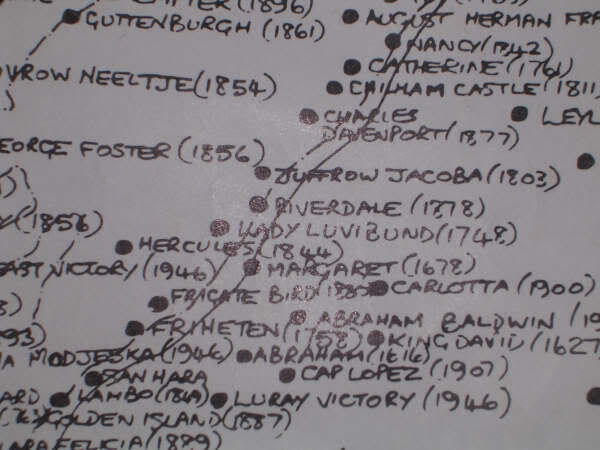 (1896)
GUTTENBURGH (1861)
AUGUST HERMAN FRA
NANCY (1842)
CATHERINE (1761)
VROW NEELTJE (1854)
CHILHAM CASTLE (1811)
LEYL
CHARLES
DAVENPORT (1877)
EORGE FOSTER (1856)
JUFFROW JACOBA (1803)
RIVERDALE (1878)
(1856)
LADY LUVIBUND (1748)
HERCULES (1844)
EAST VICTORY (1946)
MARGARET (1678)
FRIGATE BIRD
CARLOTTA (1900)
ABRAHAM BALDWIN (19
893)
FRIHETEN (1758)
KING DAVID (1627
A MODJESKA (1946)
ABRAHAM (1616)
SAN HARA
CAP LOPEZ (1907)
ARD
LAMBO
LURAY VICTORY (1946)
GOLDEN ISLAND (1887)
ARA FELICIA (1889)